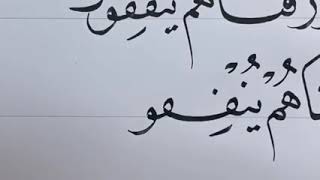 رزقناهم ينفقو
ناهُمْ يُنْفِقو